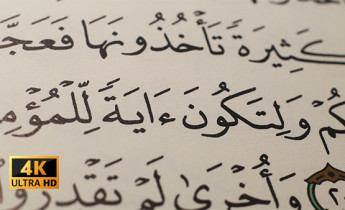 كَثِيرَةً تَأْخُذُونَهَا فَعَجَّ
كُمْ وَلِتَكُونَ ءَايَةً لِّلْمُؤْمِ
وَأُخْرَىٰ لَمْ تَقْدِرُوا
4K
ULTRA HD